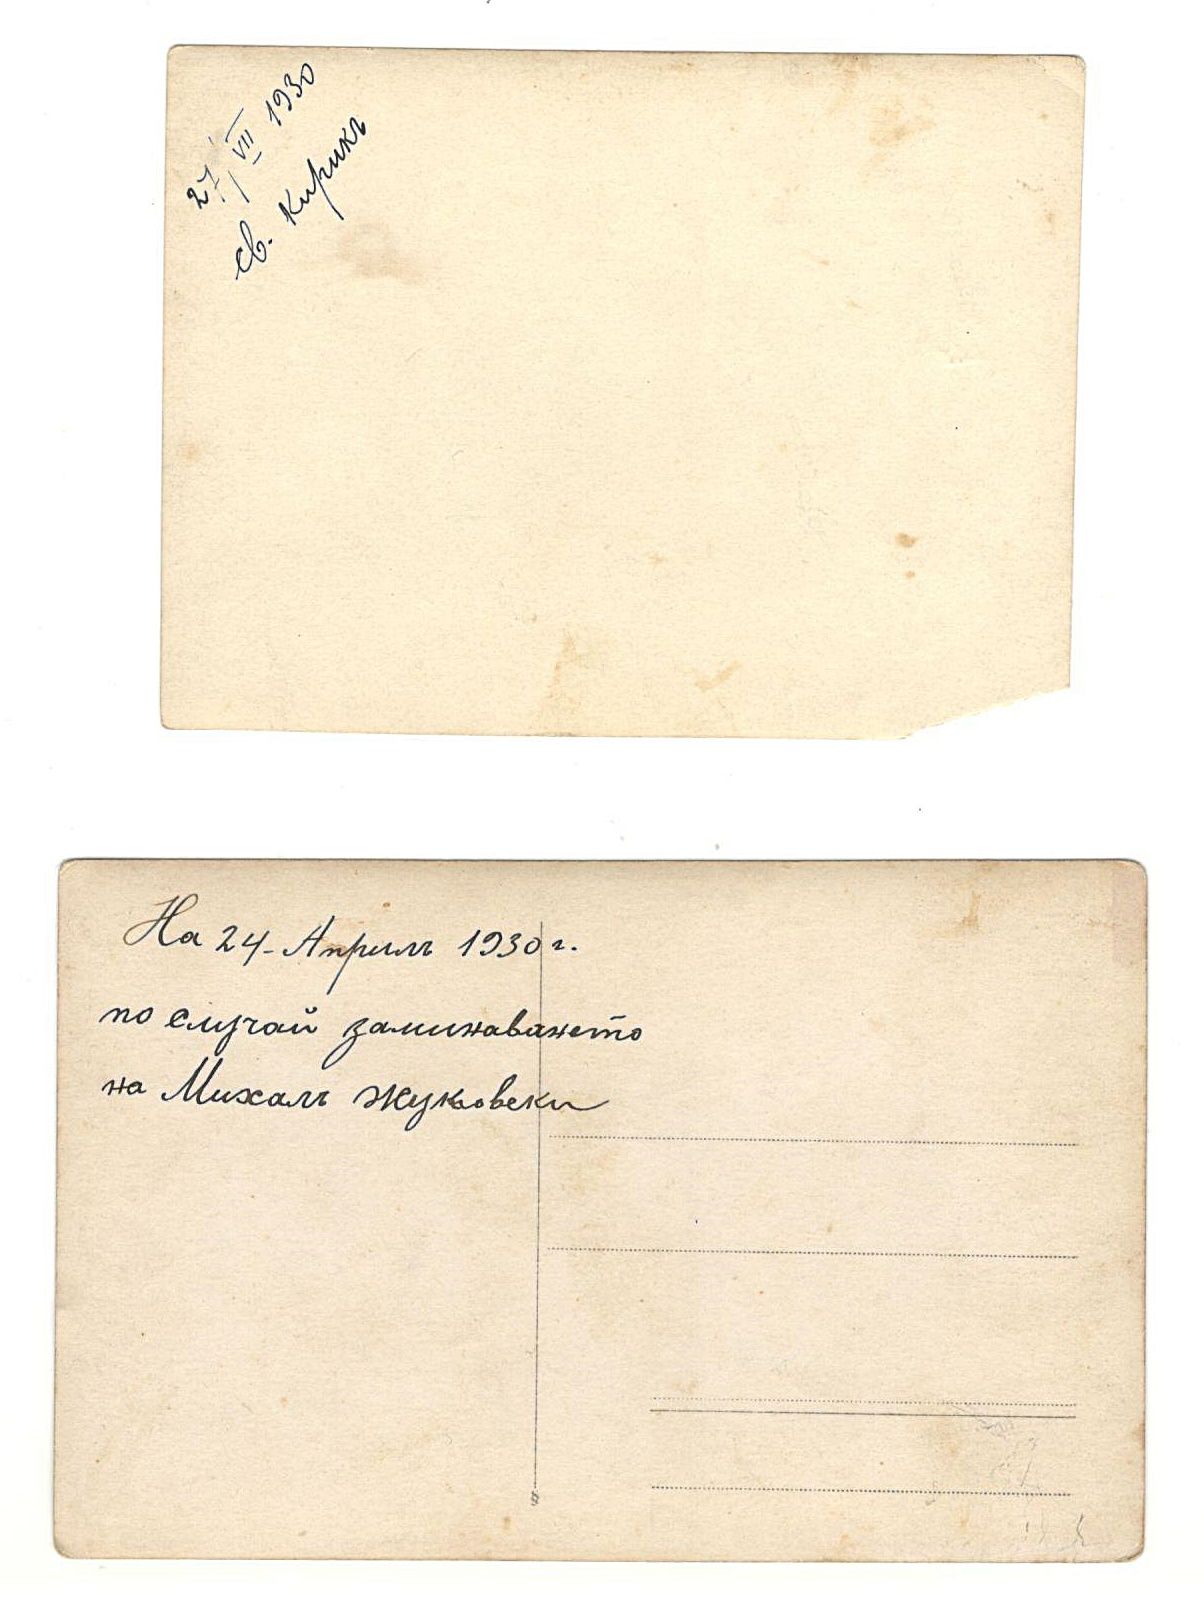 27/VII 1930
св. Кирикъ
На 24 - Априлъ 1930 г.
по случай заминаването
на Михалъ Жуковски